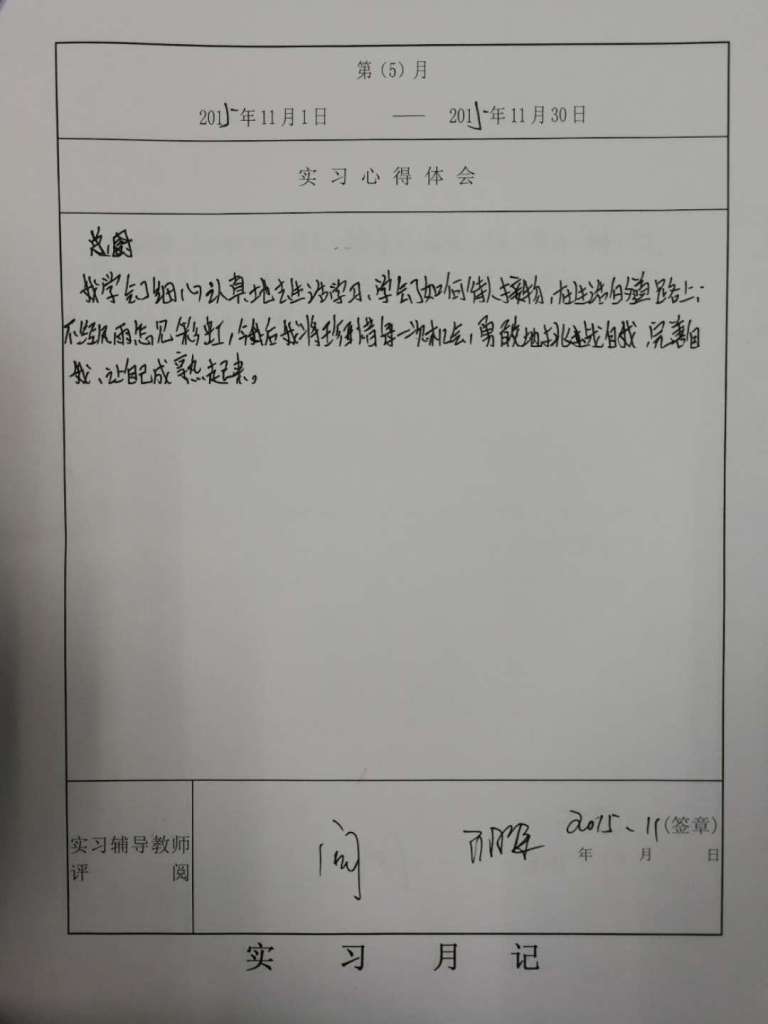 第（5）月
2015年11月1日 —— 2015年11月30日
实习心得体会
我学会了细心认真地去生活学习、学会了如何待人接物，在生活的道路上；
不经风雨怎见彩虹，今后我将珍惜每一次机会，勇敢地挑战自我、完善自
我、让自己成熟起来。
2015、11（签章）
实习辅导教师
评阅
年 月 日
阅
实习月记